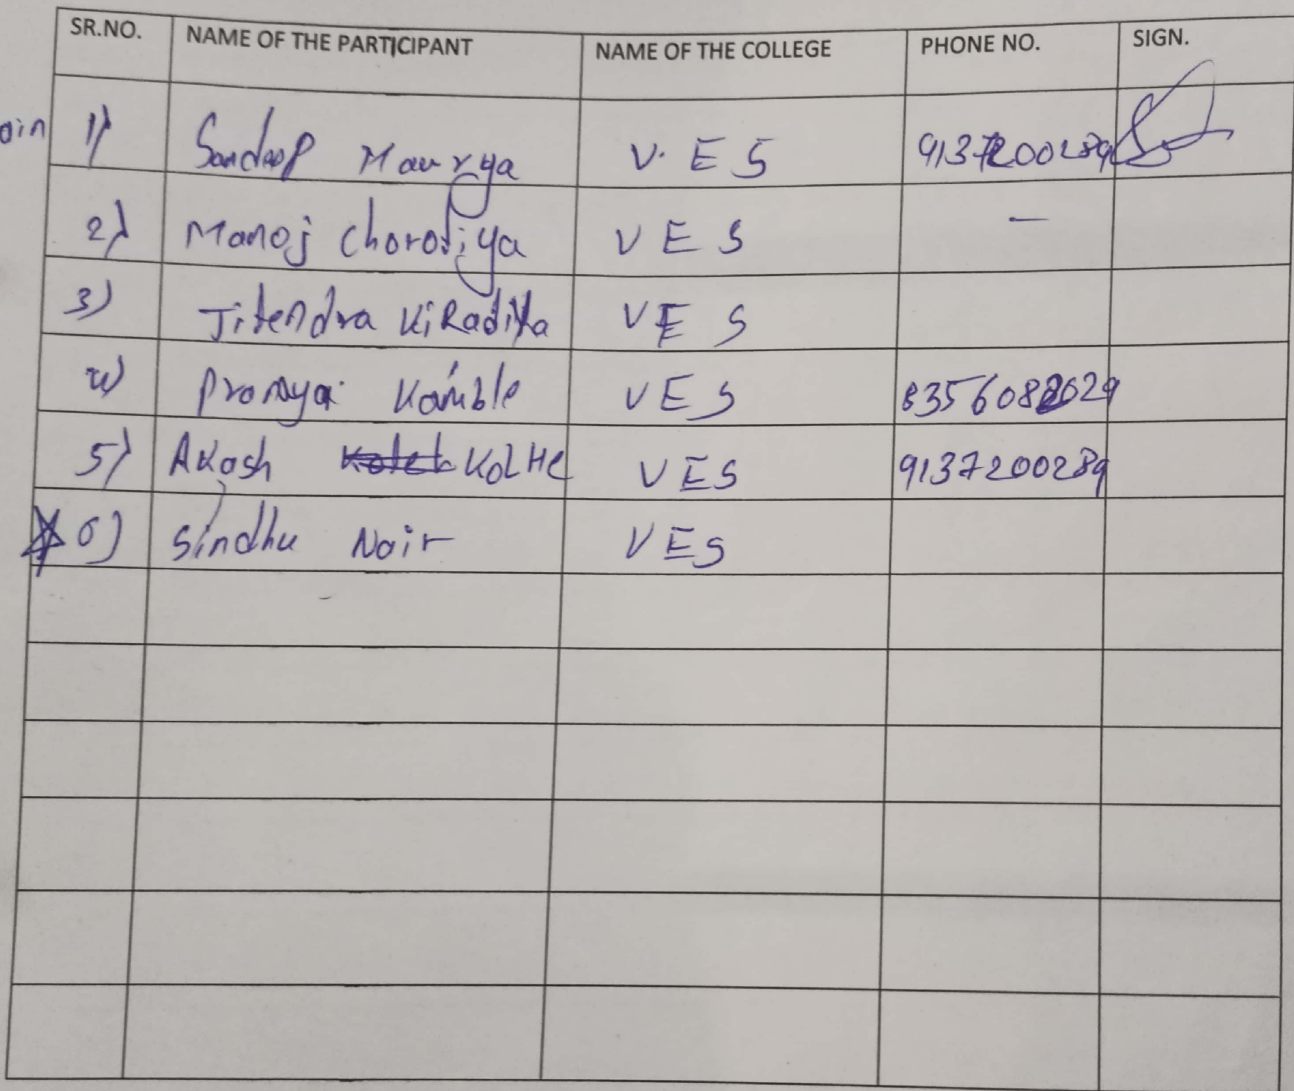 SR.NO. NAME OF THE PARTICIPANT NAME OF THE COLLEGE PHONE NO. SIGN.
oin 1) Sandeep Maurya V. E S 9137200289
2) Manoj Chorotiya V E S —
3) Jitendra KiRadiya V E S
4) Kamble V E S
5) Akash KOLHE V E S 9137200289
6) Sindhu Nair V E S